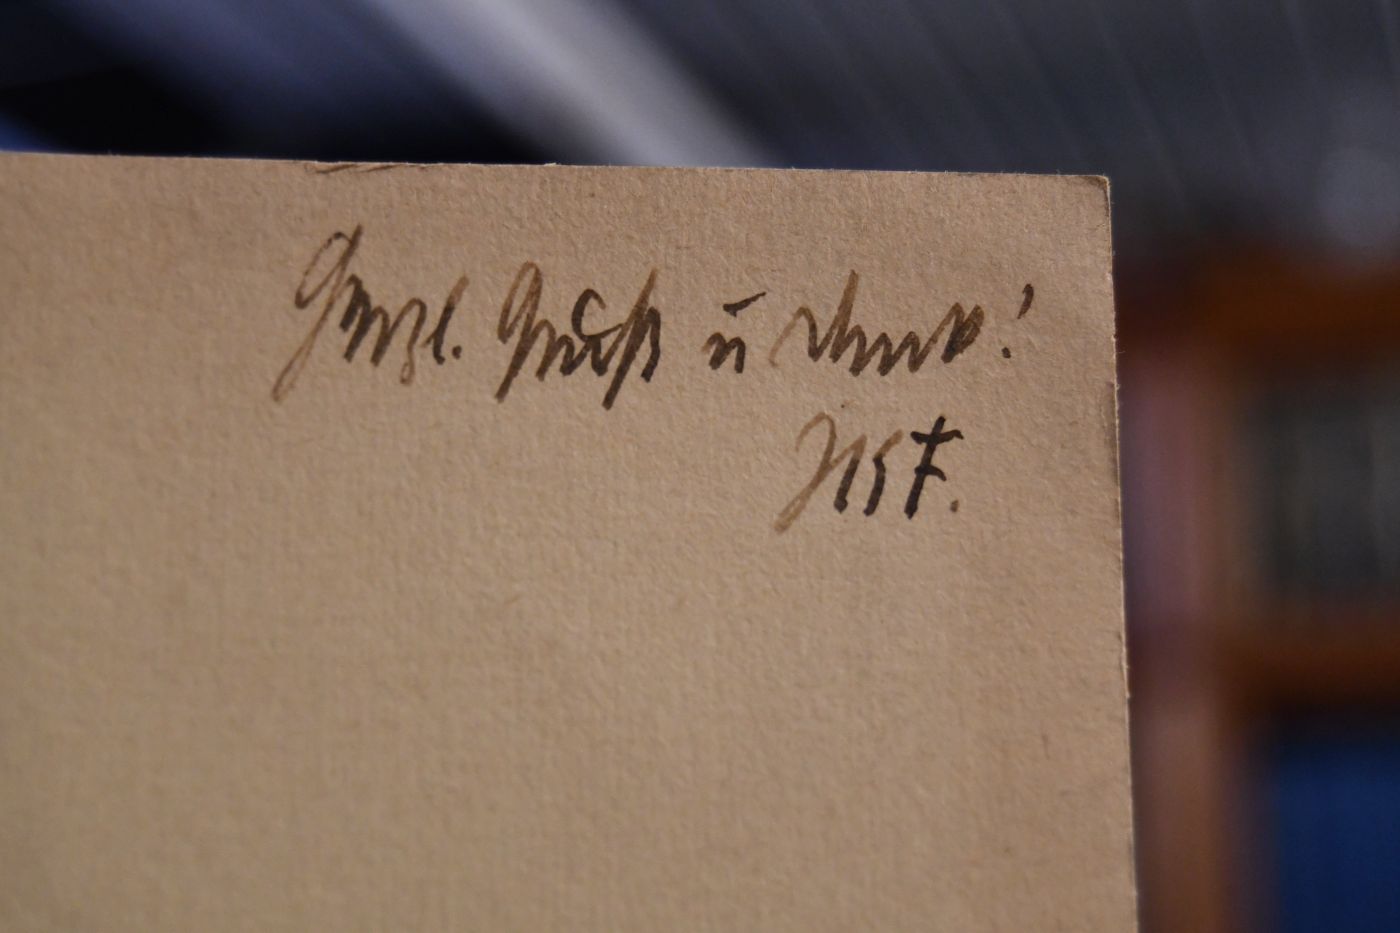 Herzl. Gruß u Dank!